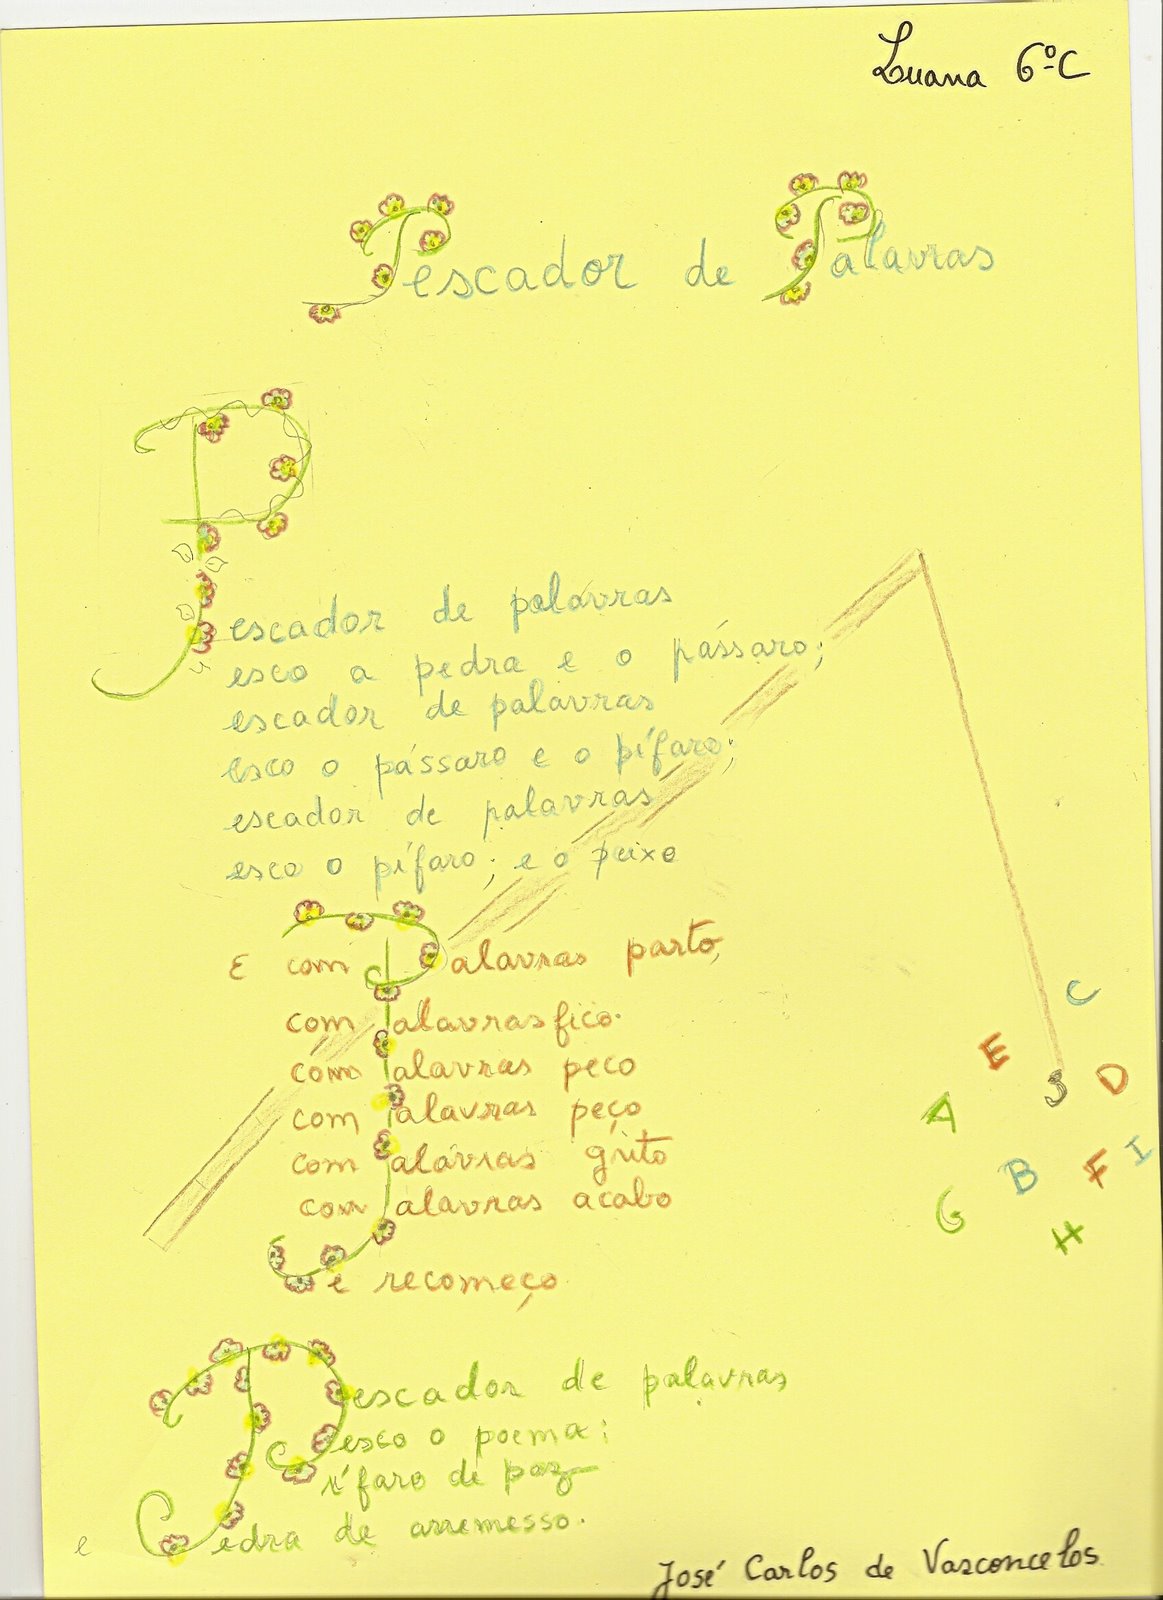 Luana 6ºC
Pescador de Palavras
Pescador de palavras
esco a pedra e o pássaro;
escador de palavras
esco o pássaro e o pífaro;
escador de palavras
esco o pífaro; e o peixe
E com Palavras parto,
com alavras fico.
com alavras peco
com alavras peço
com alavras grito
com alavras acabo
e recomeço
Pescador de palavras
esco o poema:
ífaro de paz
e edra de arremesso.
C
E
D
A
B
F
I
G
H
José Carlos de Vasconcelos